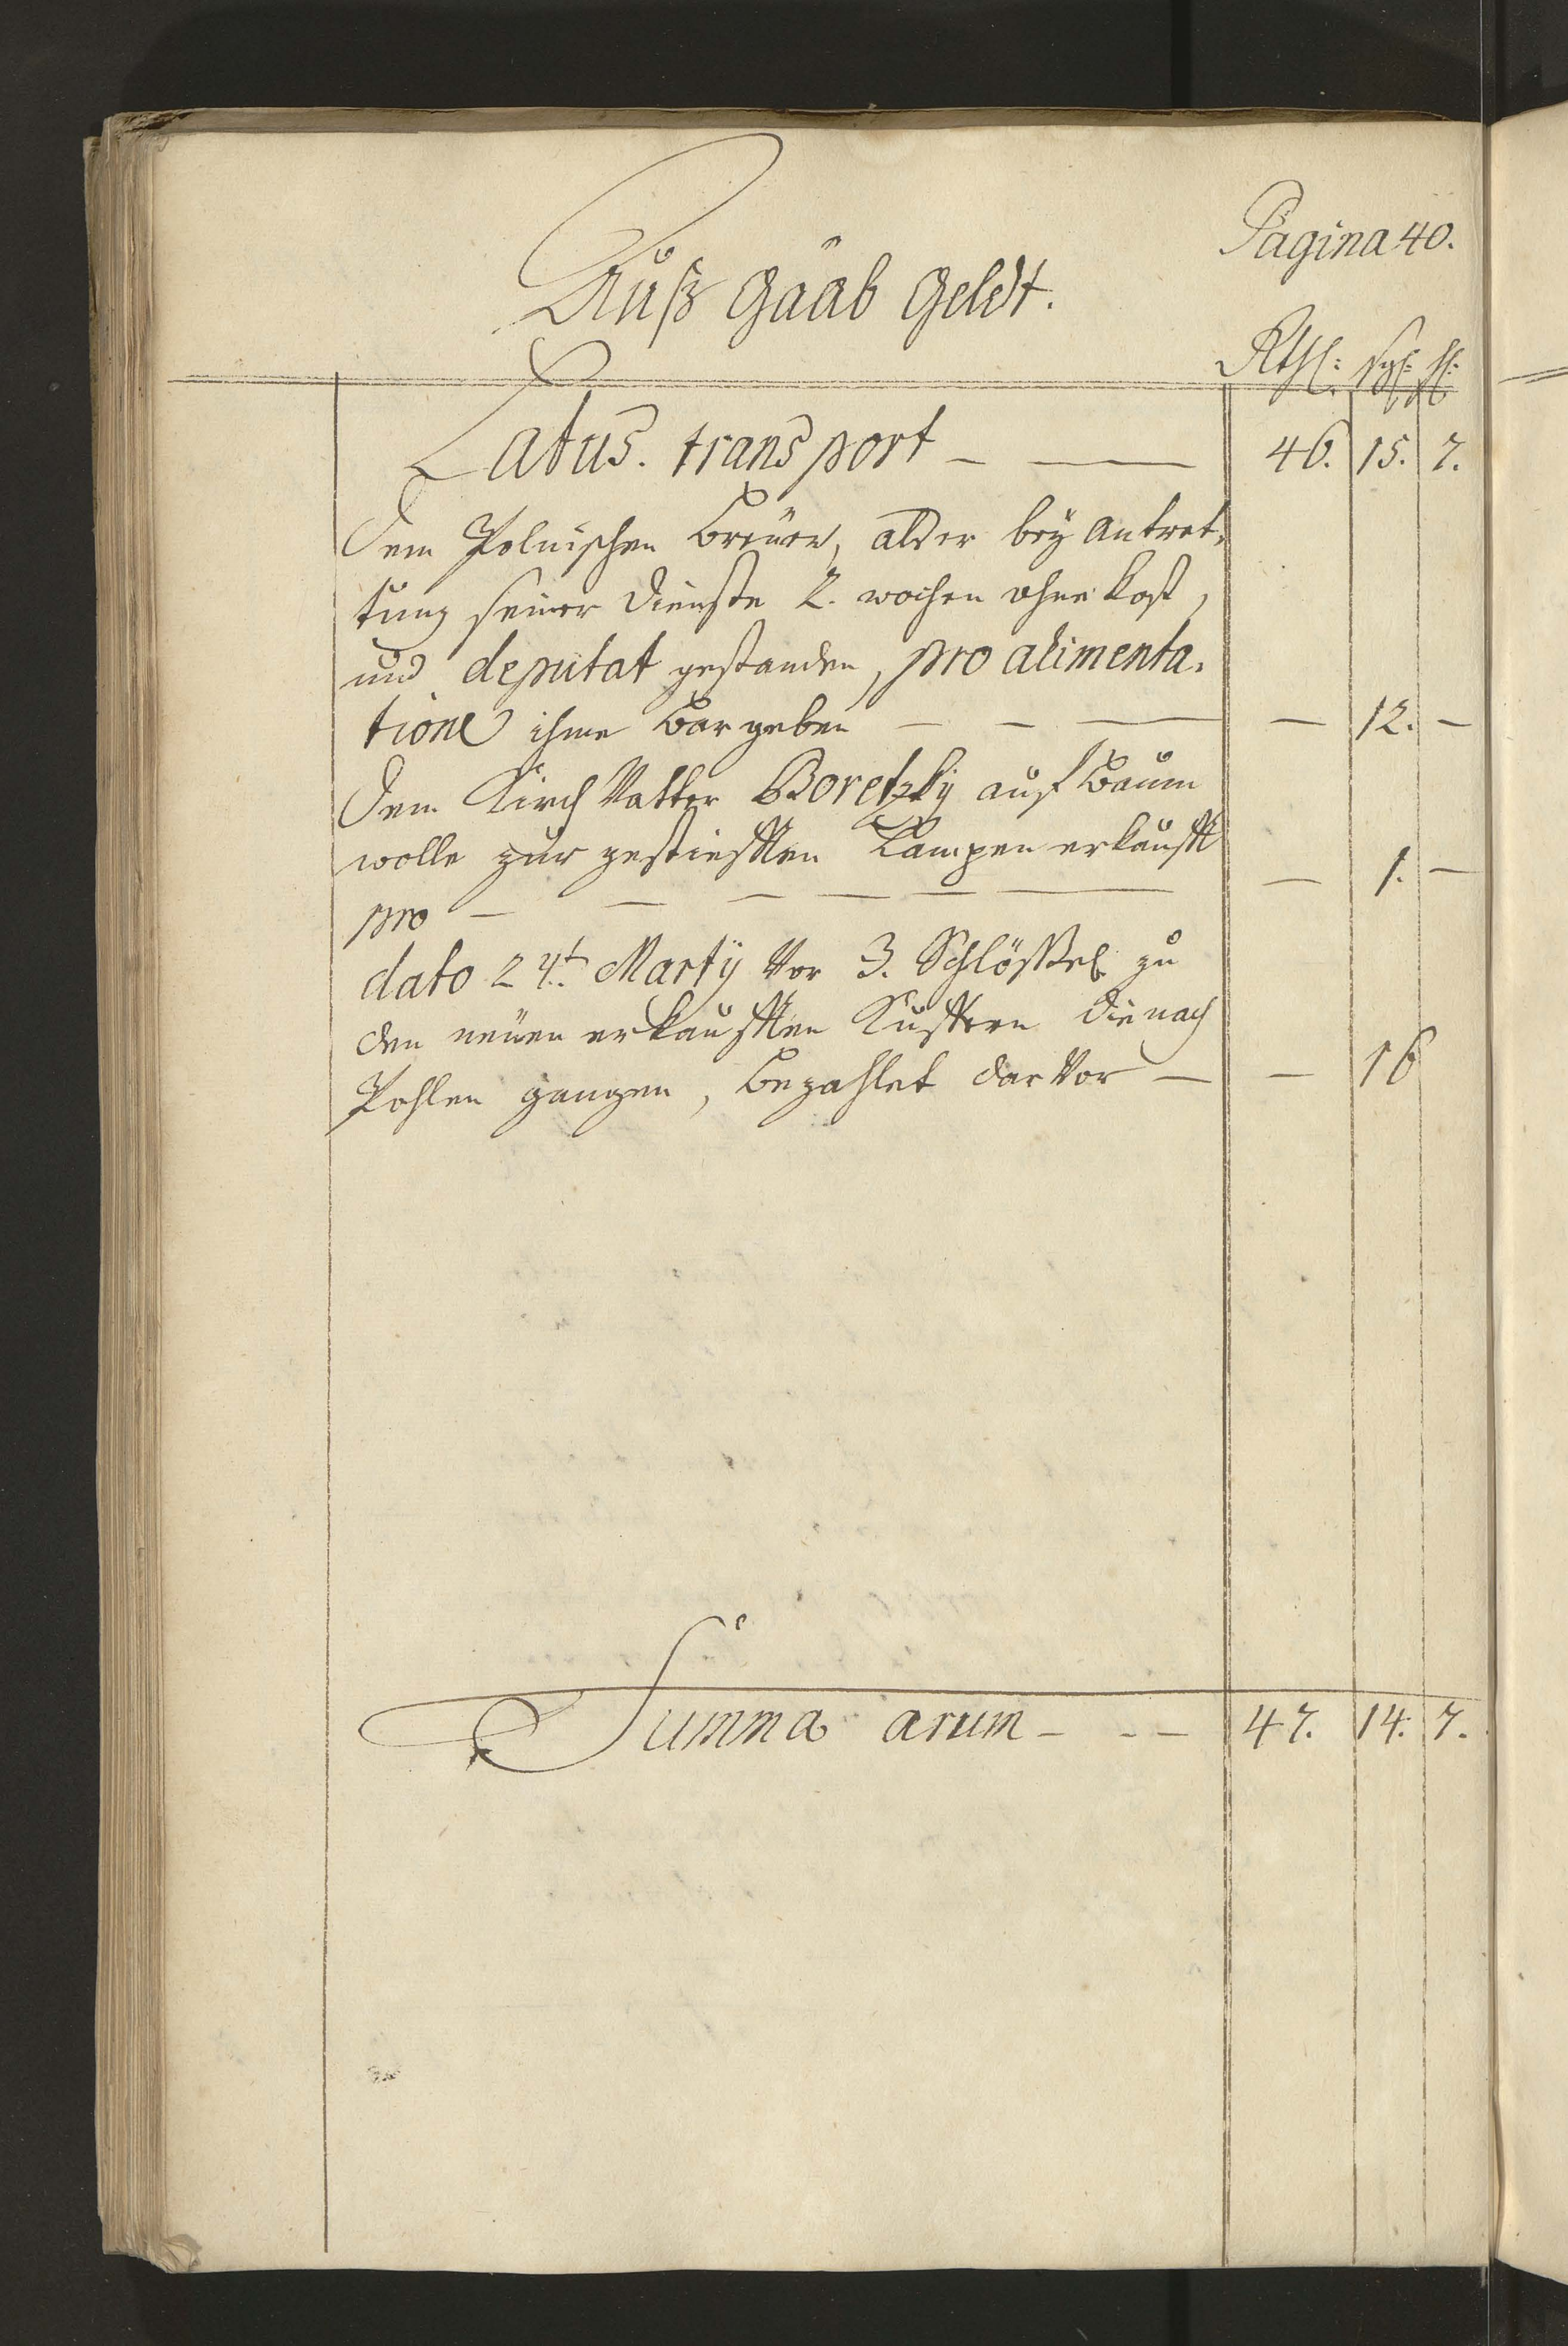 Pagina 40.
Auß gaab geldt.
Rthl: sgl: hl:
Latus. transport - — 46. 15. 7.
Dem Polnischen Breüer, als er beÿ antret,
tung seiner dienste 2. wochen ohne kost,
und deputat gestanden, pro alimenta,
tione ihme bar geben — - — — 12. -
Dem Kirch Vatter Boretzkÿ auf baum
wolle zur gestiefften Lampen erkaufft
pro - — — — — — — 1. -
dato 24t. Martÿ Vor 3. Schlößel zu
den neüen erkaufften Kufftern die nach
Pohlen gangen, bezahlet dar Vor — — 16
Summa arum - - — 47. 14. 7.